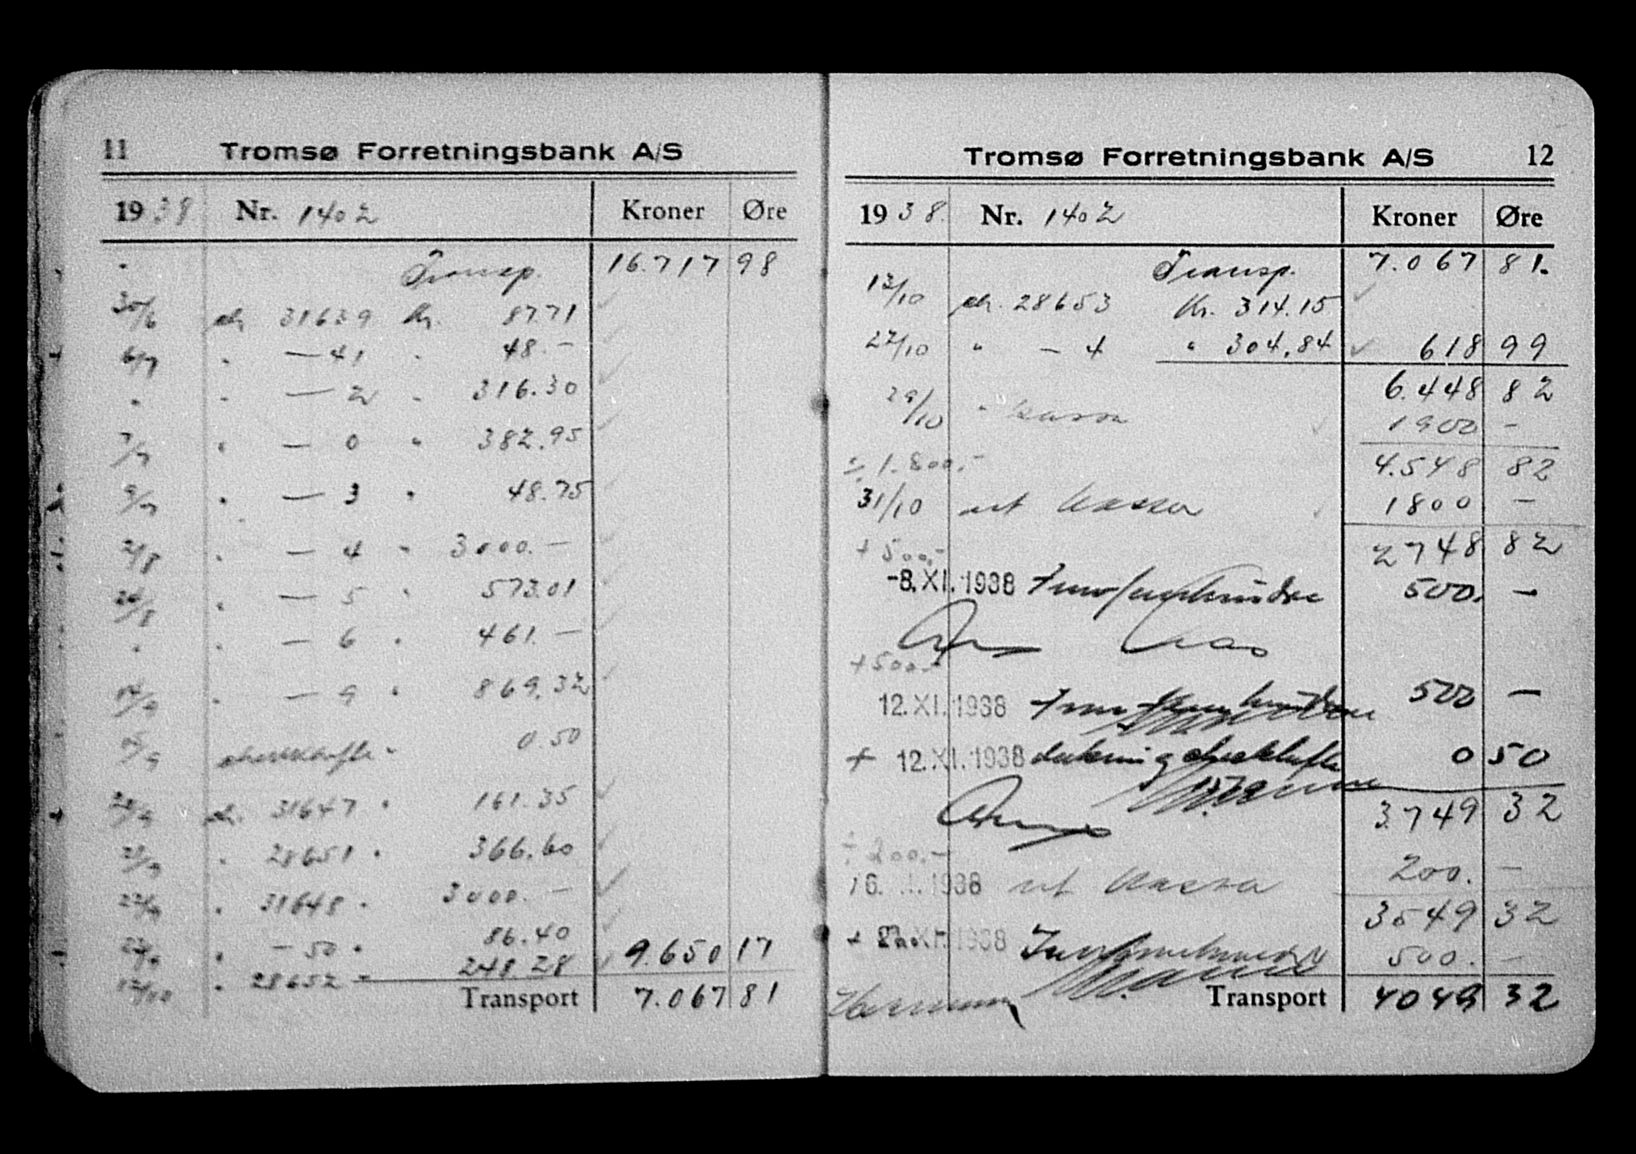 11 Tromsø Forretningsbank A/S
1938 Nr. 1402 Kroner Øre
Transp. 16.717 98
30/6 ch 31639 Kr. 87.71
6/7 " — 41 " 48.—
" " — 2 " 316.30
7/7 " — 0 " 382.95
9/7 " — 3 " 48.75
2/8 " — 4 " 3000.—
24/8 " — 5 " 573.01
" " — 6 " 461.—
14/9 " — 9 " 869.32
checkhefte " 0.50
ch. 31647 " 161.35
" 28651 " 366.60
" 31648 " 3000.—
" — 50 " 86.40
12/10 " 28652 " 248.28 9.650 17
Transport 7.067 81
Tromsø Forretningsbank A/S 12
1938. Nr. 1402 Kroner Øre
Transp. 7.067 81.
13/10 ch. 28653 Kr. 314.15
22/10 " — 4 " 304.84 618 99
6.448 82
29/10 " kassa 1900 —
4.548 82
÷ 1.800.—
31/10 ut kassa 1800 —
2748 82
+ 500.—
-8.XI.1938 500. —
+500.—
12.XI.1938 500 —
+ 12.XI.1938 checkhefte 0 50
3.749 32
÷ 200.—
16. .1938 ut kassa 200. —
3549 32
+ XI.1938 500. —
Transport 4049 32